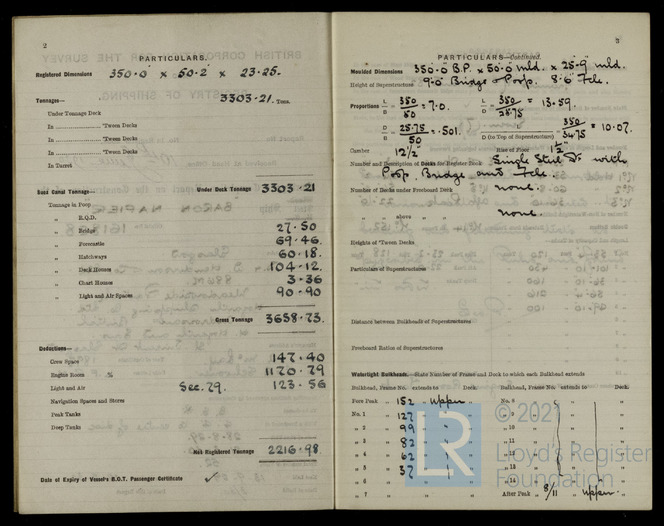 2
PARTICULARS.
Registered Dimensions 350.0 × 50.2 × 23.25.
Tonnages—
3303.21. Tons.
Under Tonnage Deck
In 'Tween Decks
In 'Tween Decks
In 'Tween Decks
In Turret
Suez Canal Tonnage— Under Deck Tonnage 3303.21
Tonnage in Poop
„ R.Q.D.
„ Bridge 27.50
„ Forecastle 69.46.
„ Hatchways 60.18.
„ Deck Houses 104.12.
„ Chart Houses 3.36
„ Light and Air Spaces 90.90
Gross Tonnage 3658.73.
Deductions—
Crew Space 147.40
Engine Room % 1170.79
Light and Air Sec. 79. 123.56
Navigation Spaces and Stores
Peak Tanks
Deep Tanks
Net Registered Tonnage 2216.98
Date of Expiry of Vessel's B.O.T. Passenger Certificate ✓
3
PARTICULARS—Continued.
Moulded Dimensions 350.0 B.P. × 50.0 mld. × 25.9 mld.
Height of Superstructures 9.0 Bridge & Poop. 8.6 Fcle.
Proportions L/B = 350/50 = 7.0. L/D = 350/25.75 = 13.59.
D/B = 25.75/50 = .501. L/D (to Top of Superstructure) = 350/34.75 = 10.07.
Camber 12½" Rise of Floor 1½"
Number and Description of Decks for Register Book Single Steel Dk with
Poop, Bridge and Fcle.
Number of Decks under Freeboard Deck none.
„ above „ „ none.
Heights of 'Tween Decks
Particulars of Superstructures
Distance between Bulkheads of Superstructures
Freeboard Ratios of Superstructures
Watertight Bulkheads.—State Number of Frame and Deck to which each Bulkhead extends
Bulkhead, Frame No. extends to Deck. Bulkhead, Frame No. extends to Deck.
Fore Peak 152 „ Upper „ No. 8
No. 1 127 „ 9
„ 2 99 „ 10
„ 3 82 „ 11
„ 4 62 „ 12
„ 5 37 „ 13
„ 6 „ 14
„ 7 After Peak 8/11 „ Upper „
© 2021
LR
Lloyd's Register
Foundation